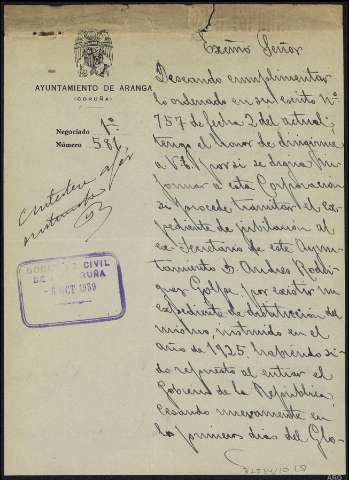 AYUNTAMIENTO DE ARANGA
(CORUÑA)
Negociado 1º
Número 581
GOBIERNO CIVIL
DE LA CORUÑA
- 8 OCT 1959
Excmo Señor
Deseando cumplimentar
lo ordenado en su escrito Nº
757 de fecha 2 del actual;
tengo el honor de dirigirme
a V.E. por si se digna in-
formar a esta Corporación
si procede tramitar el ex-
pediente de jubilacion al
ex-Secretario de este Ayun-
tamiento D. Andres Rodri-
guez Golpe por existir un
expediente de destitución del
mismo, instruido en el
año de 1925, habiendo si-
do repuesto al entrar el
Gobierno de la Republica,
cesando nuevamente en
los primeros dias del Glo-